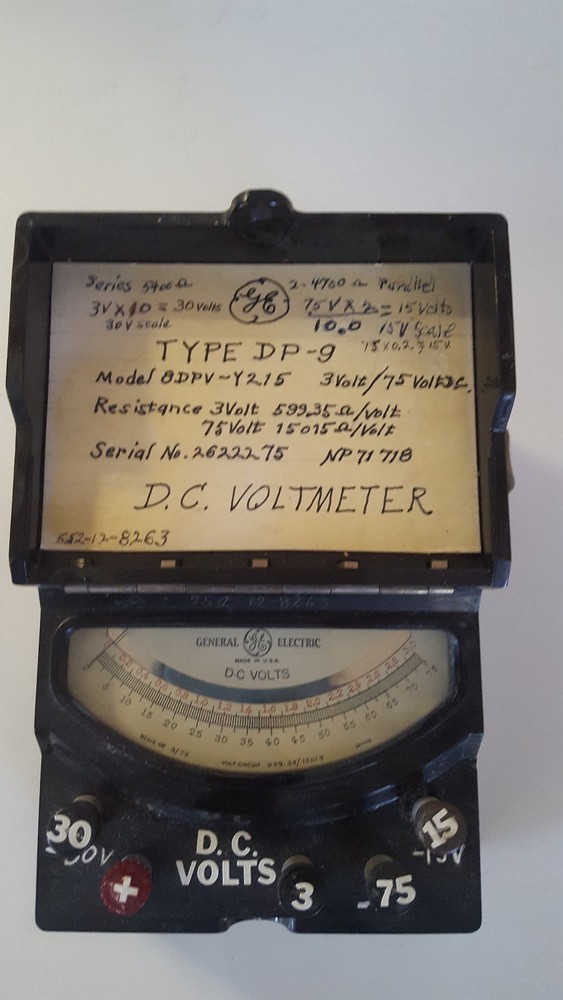 Series 5400Ω GE 2-4700Ω Parallel
3V X 10 = 30 Volts 75V X 2 = 15 Volts
30V scale 10.0 15V Scale
TYPE DP-9
Model 8DPV-Y215 3Volt/75Volt
Resistance 3Volt 599.35Ω/Volt
75Volt 15015Ω/Volt
Serial No. 2622275 NP 71718
D.C. VOLTMETER
552-12-8263
552-12-8263
GENERAL GE ELECTRIC
MADE IN U.S.A.
D.C VOLTS
0.2 0.4 0.6 0.8 1.0 1.2 1.4 1.6 1.8 2.0 2.2 2.4 2.6 2.8 3.0
0 5 10 15 20 25 30 35 40 45 50 55 60 65 70 75
30 D.C. 15
-30V VOLTS -15V
+ 3 -75